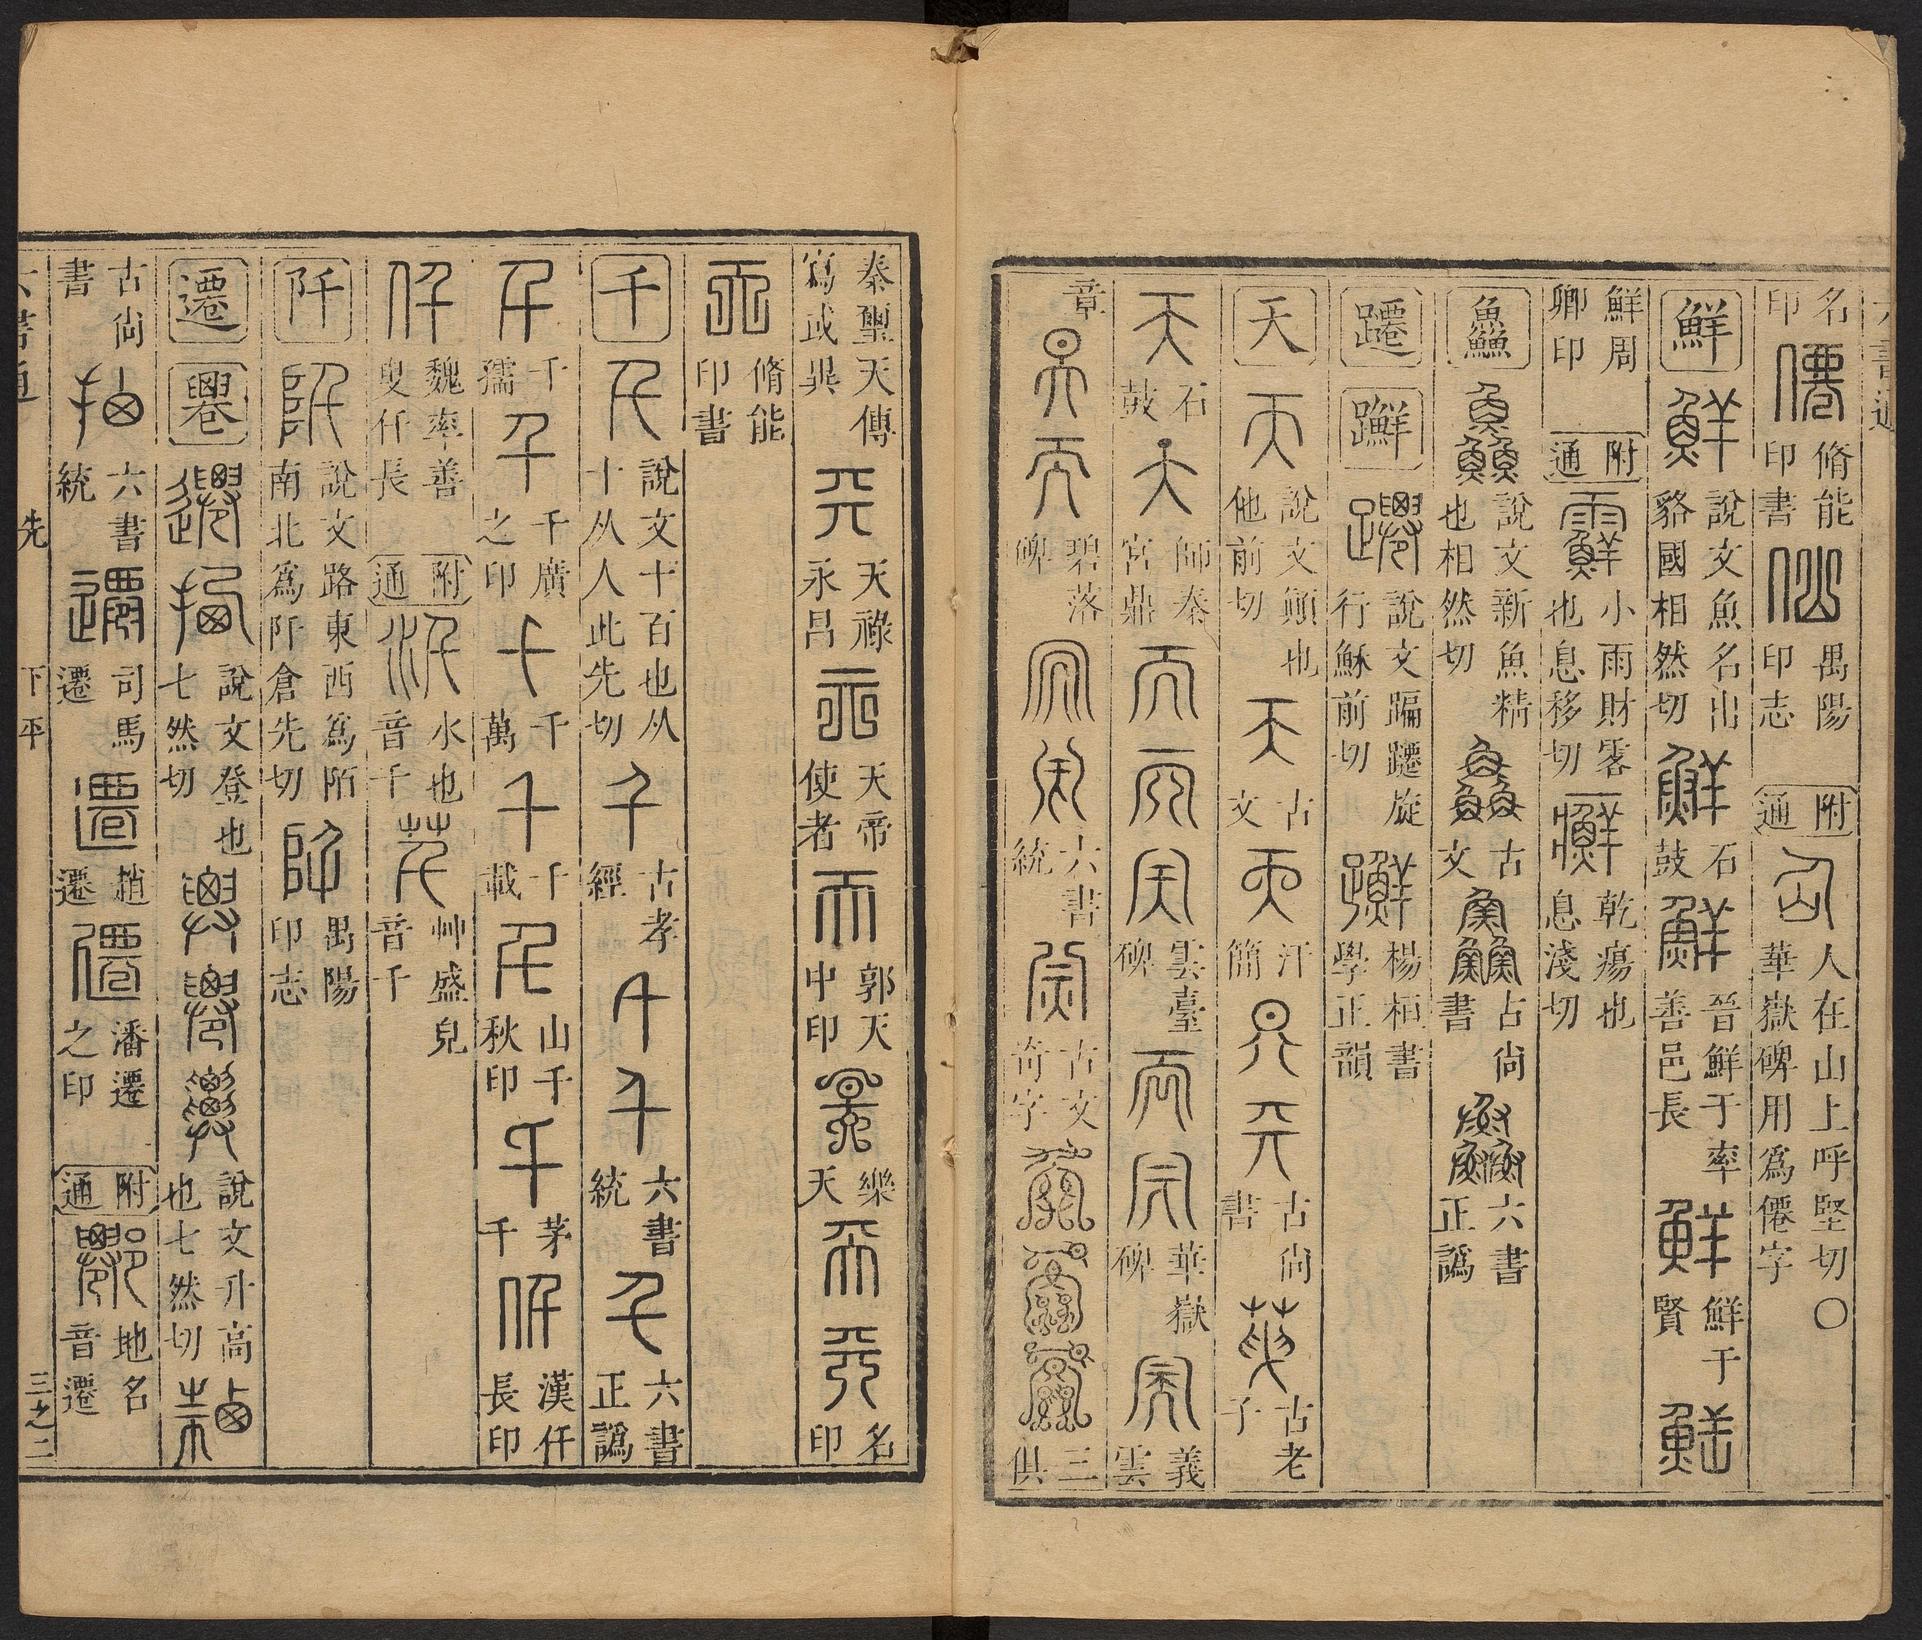 六書通
名印 僊 脩能印書 仙 禺陽印志 附通 仚 人在山上呼堅切〇華嶽碑用爲僊字
鮮 鮮 說文魚名出貉國相然切 鮮 石鼓 鮮 晉鮮于率善邑長 鮮 鮮于賢 鮮
鮮周卿印 附通 小雨財零也息移切 乾瘍也息淺切
鱻 鱻 說文新魚精也相然切 鱻 古文 鱻 古尚書 鱻 六書正譌
躚 說文蹁躚旋行穌前切 楊桓書學正韻
天 天 說文顚也他前切 天 古文 天 汗簡 天 天 古尚書 古老子
天 石鼓 天 師秦宮鼎 天 天 天 雲臺碑 天 天 華嶽碑 天 義雲
章 天 天 碧落碑 天 天 六書統 天 古文奇字 三俱
秦璽天傳寫或異 天 天祿永昌 天 天帝使者 天 郭天中印 天 樂天 天 天 名印
天 脩能印書
千 千 說文十百也从十从人此先切 千 古孝經 千 千 六書統 千 六書正譌
千 千孺 千 千廣之印 千 千萬 千 千載 千 山千秋印 千 茅千 仟 漢仟長印
仟 魏率善叟仟長 附通 汘 水也音千 芊 艸盛皃音千
阡 阡 說文路東西爲陌南北爲阡倉先切 阡 禺陽印志
遷 䙴 遷 說文登也七然切 䙴 說文升高也七然切
古尚書 六書統 遷 司馬遷 遷 趙遷 僊 潘遷之印 附通 地名音遷
六書通 先 下平 三之二